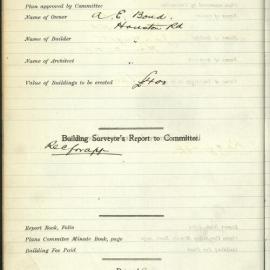 Plan approved by Committee
Name of Owner A. E. Bond.
Houston Rd
Name of Builder "
Name of Architect "
Value of Buildings to be erected £400
Building Surveyor's Report to Committee.
Rec for app
Report Book, Folio
Plans Commitee Minute Book, page
Building Fee Paid